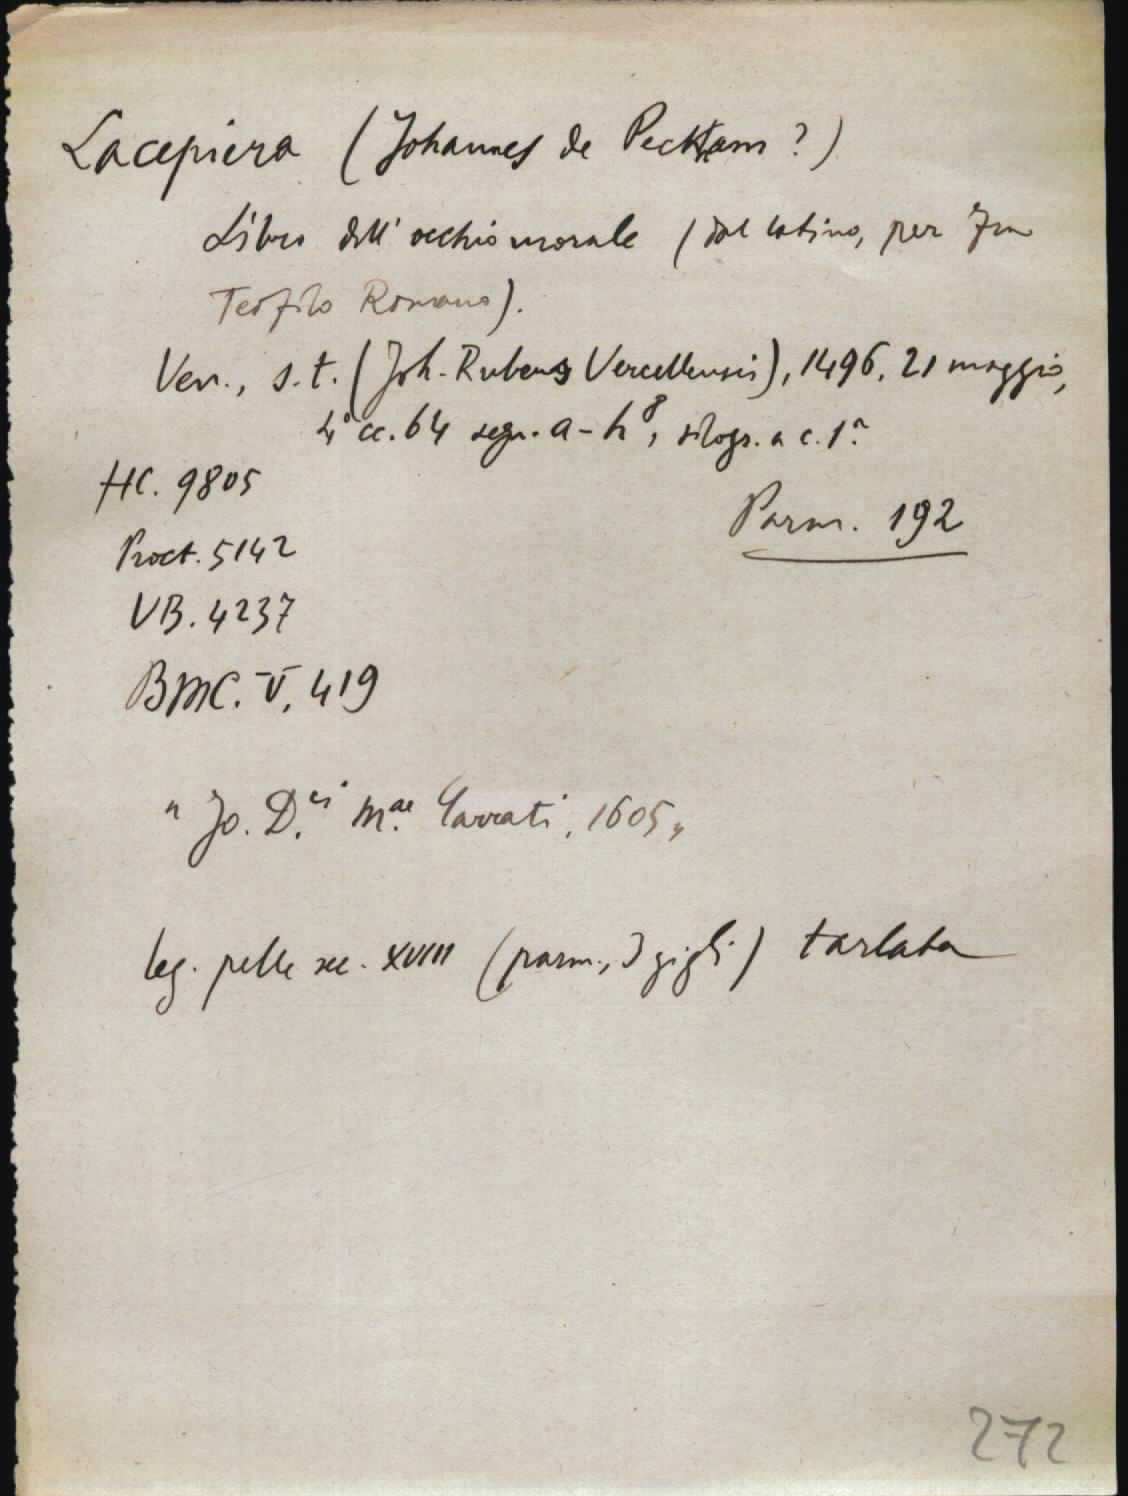 Lacepiera (Johannes de Peckham ?)
Libro dell'occhio morale (dal latino, per Fra
Teofilo Romano).
Ven., s.t. (Joh. Rubeus Vercellensis), 1496, 21 maggio,
4° cc. 64 segn. a-h⁸, silogr. a c. 1ª.
HC. 9805
Parm. 192
Proct. 5142
VB. 4237
BMC. V, 419
"Jo. D.ci M.ae Garrati, 1605"
leg. pelle sec. XVIII (parm., 3 gigli) tarlata
272